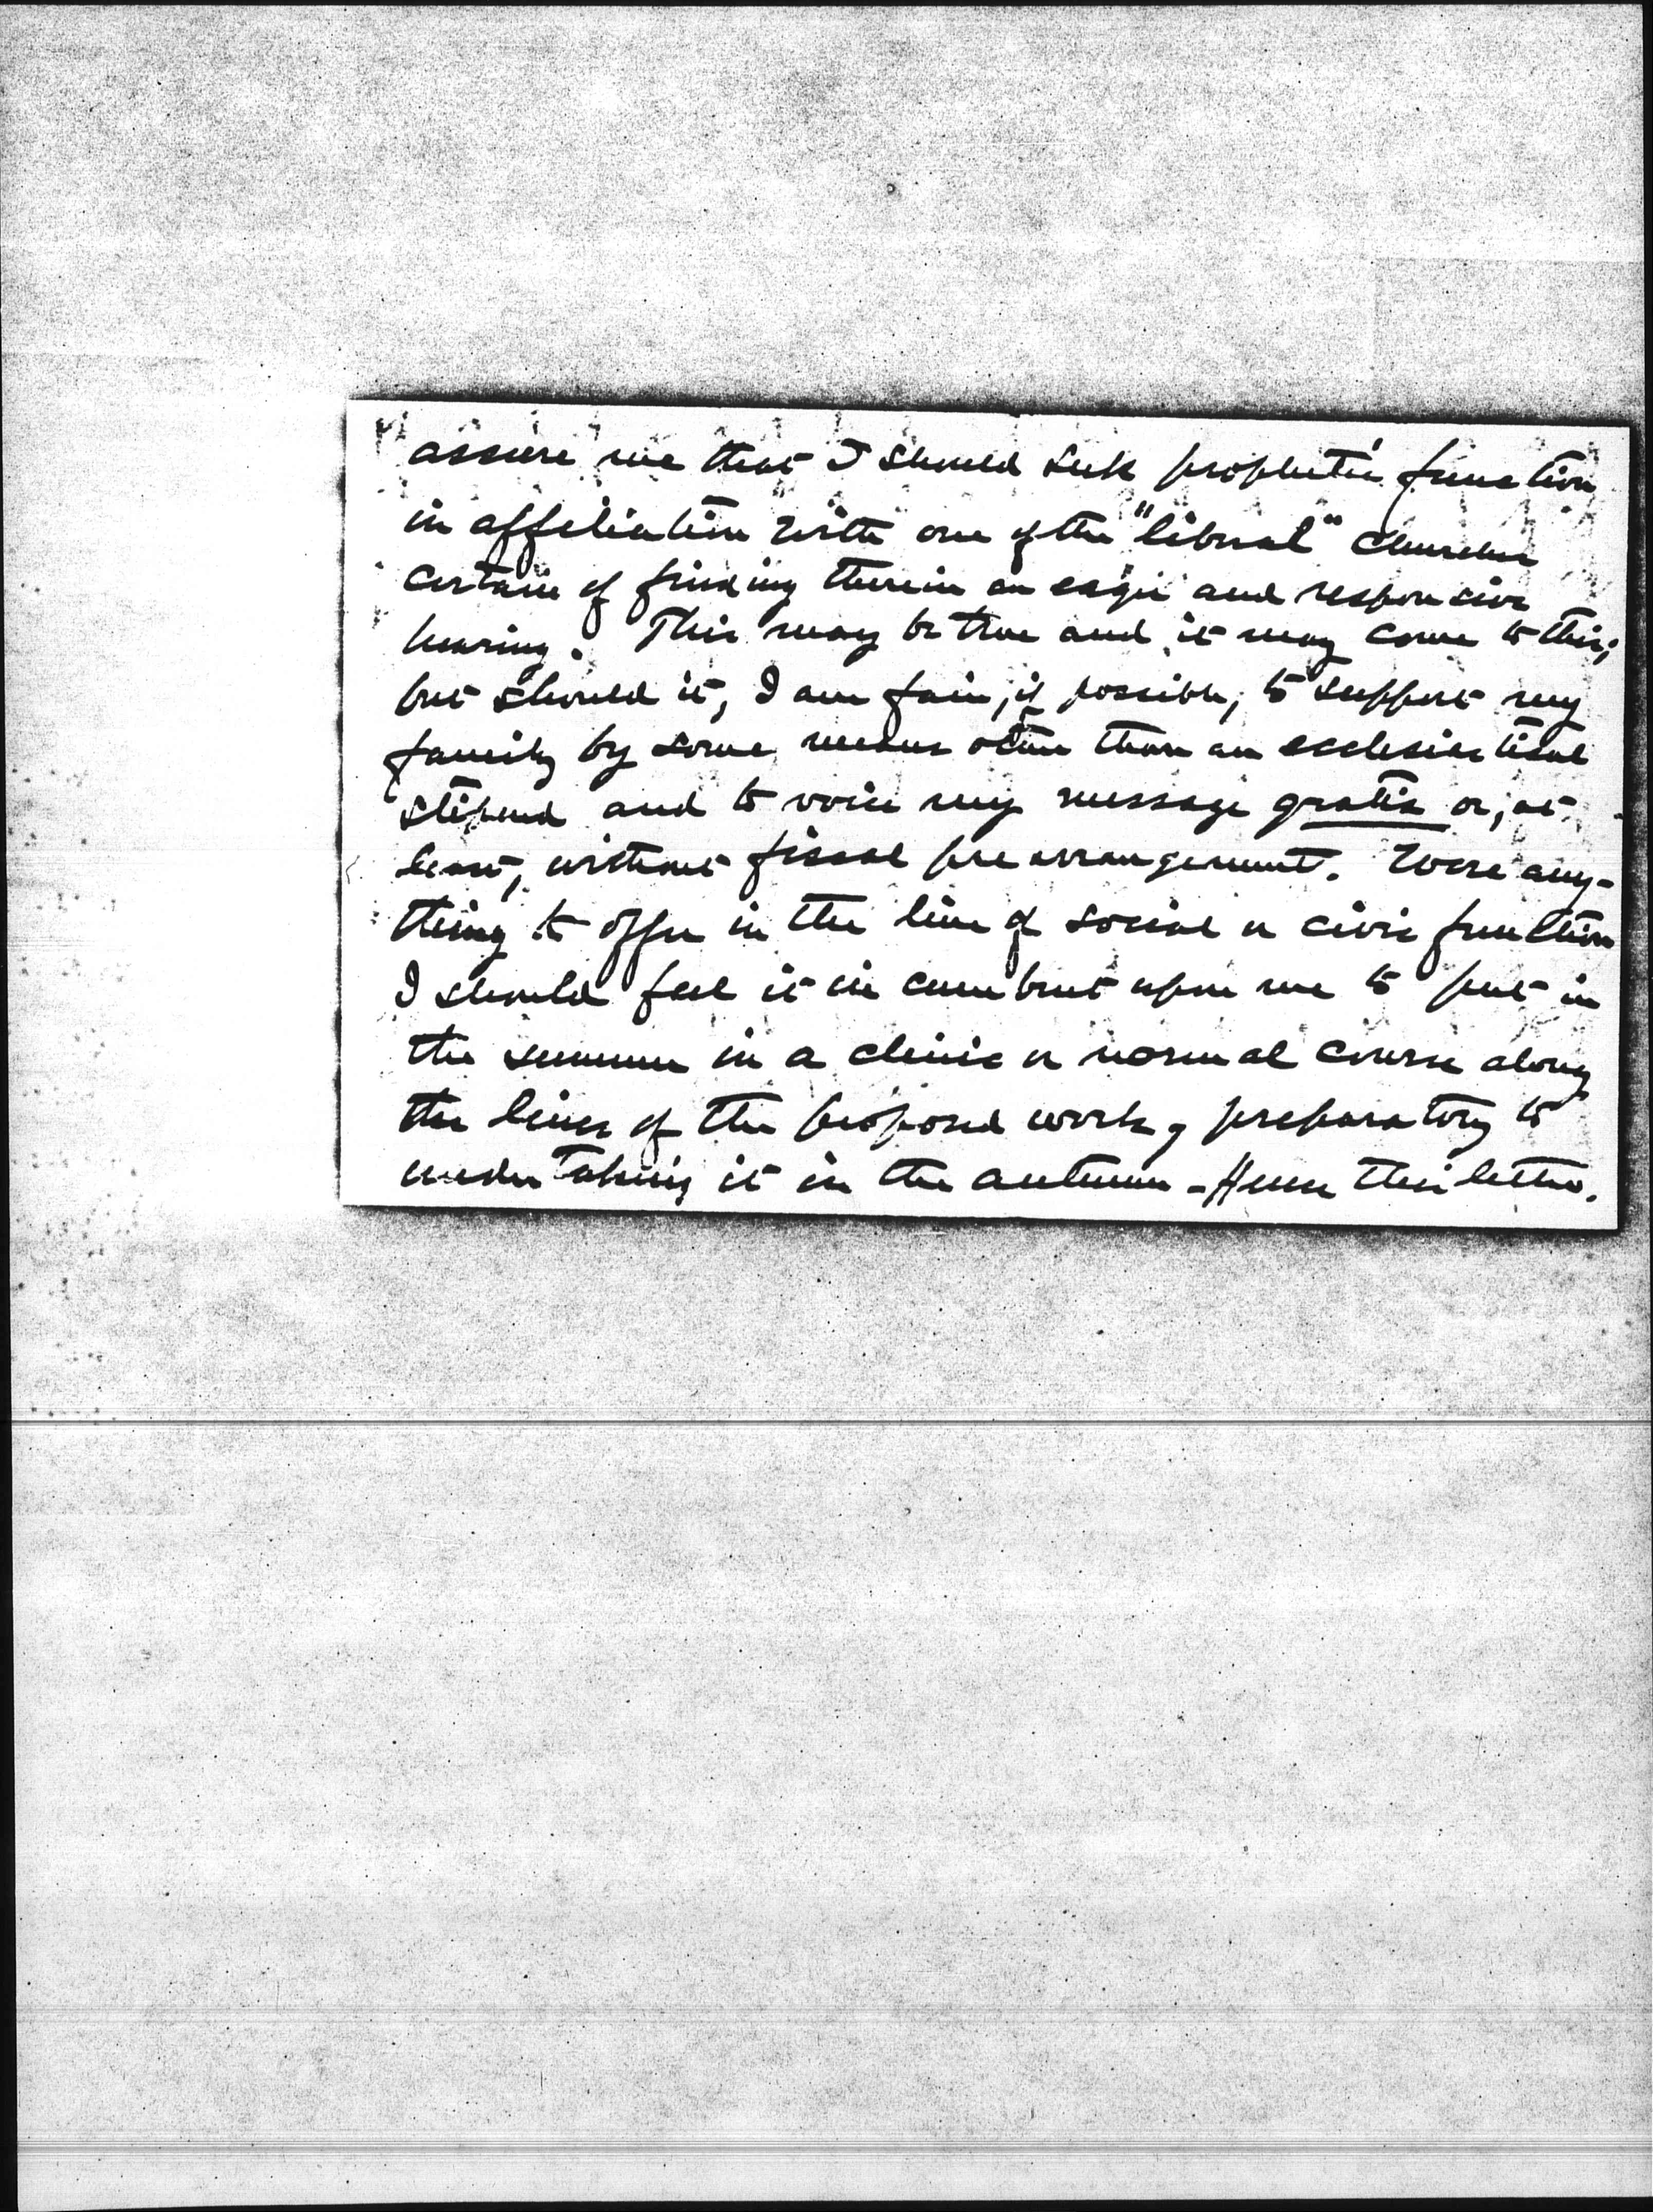 assure me that I should seek prophetic function
in affiliation with one of the "liberal" churches
certain of finding therein an eager and responsive
hearing. This may be true and it may come to this;
but should it, I am fain, if possible, to support my
family by some means other than an ecclesiastical
stipend and to voice my message gratis or, at
least, without fiscal prearrangement. Were any-
thing to offer in the line of social or civic function
I should feel it incumbent upon me to put in
the summer in a clinic or normal course along
the lines of the proposed work, preparatory to
undertaking it in the autumn - Hence this letter.